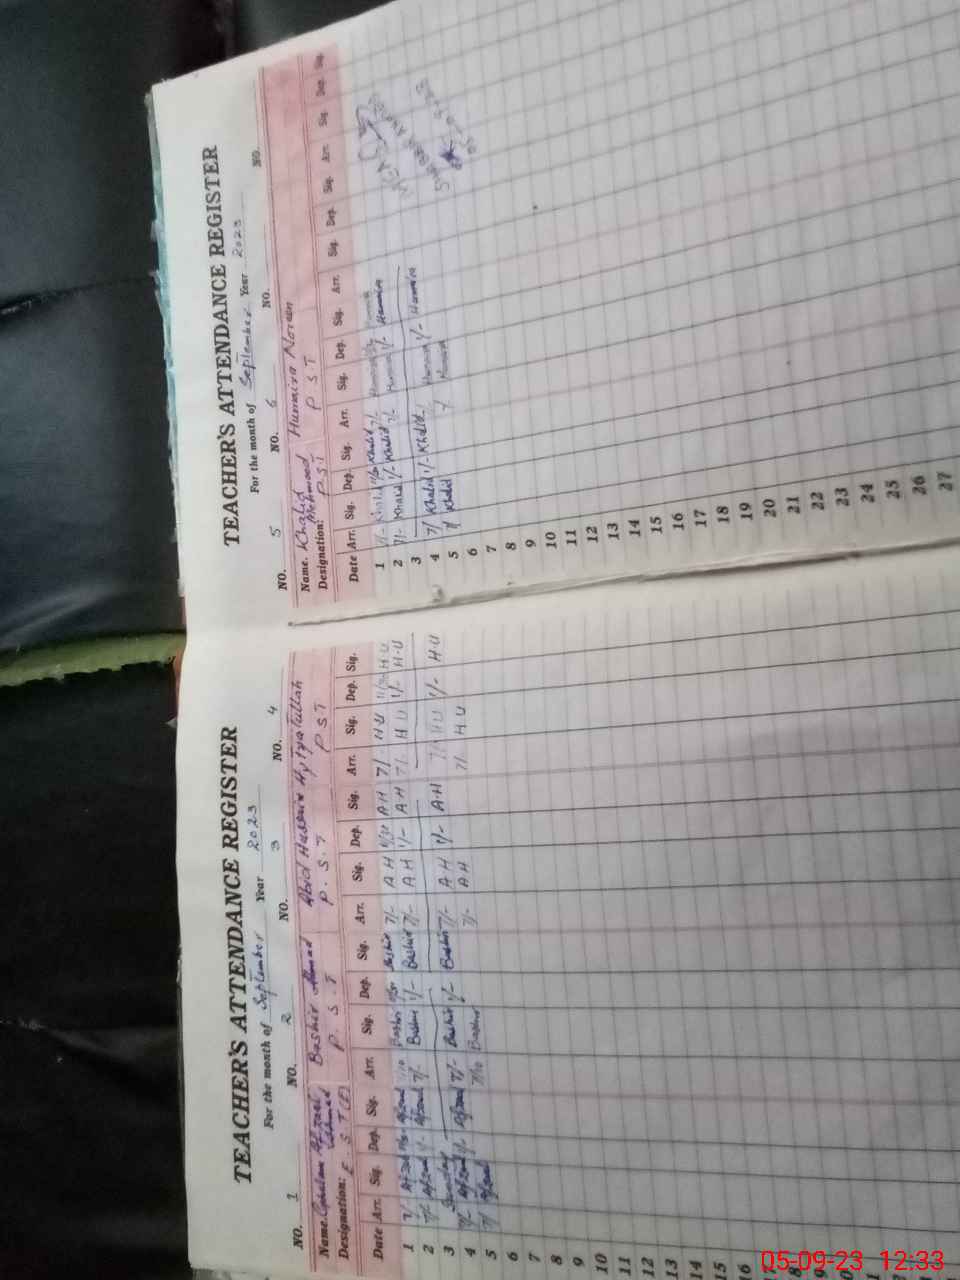 TEACHER'S ATTENDANCE REGISTER
For the month of September Year 2023
NO. 1 NO. 2 NO. 3 NO. 4
Name. Afzaal Bashir Ahmad Abid Hussain Hytyatullah
Designation: E. S. T (E) P. S. T P. S. T P S T
Date Arr. Sig. Dep. Sig. Arr. Sig. Dep. Sig. Arr. Sig. Dep. Sig. Arr. Sig. Dep. Sig.
1 7/ Afzaal Afzaal Bashir Bashir 7/- A H A H 7/. H U H U
2 7/- Afzaal 1/- Afzaal 7/- Bashir 1/- Bashir 7/- A H 1/- A H 7/. H U 1/- H-U
3 Sunday
4 7/- Afzaal 1/- Afzaal 7/- Bashir 1/- Bashir 7/- A H 1/- A-H 7/- H U 1/- H U
5 7/ Afzaal 7/10 Bashir 7/- A H 7/. H U
6
7
8
9
10
11
12
13
14
15
16
TEACHER'S ATTENDANCE REGISTER
For the month of September Year 2023
NO. 5 NO. 6 NO. NO.
Name. Khalid Mehmood Humaira Noreen
Designation: P.S.T P S T
Date Arr. Sig. Dep. Sig. Arr. Sig. Dep. Sig. Arr. Sig. Dep. Sig. Arr. Sig. Dep. Sig.
1 7/- Khalid Khalid 7/. Humaira Humaira
2 7/- Khalid 1/- Khalid 7/- Humaira 1/- Humaira
3
4 7/ Khalid 1/- Khalid 7/ Humaira 1/- Humaira
5 7/ Khalid 7/ Humaira
6
7
8
9
10
11
12
13
14
15
16
17
18
19
20
21
22
23
24
25
26
27
05-09-23 12:33